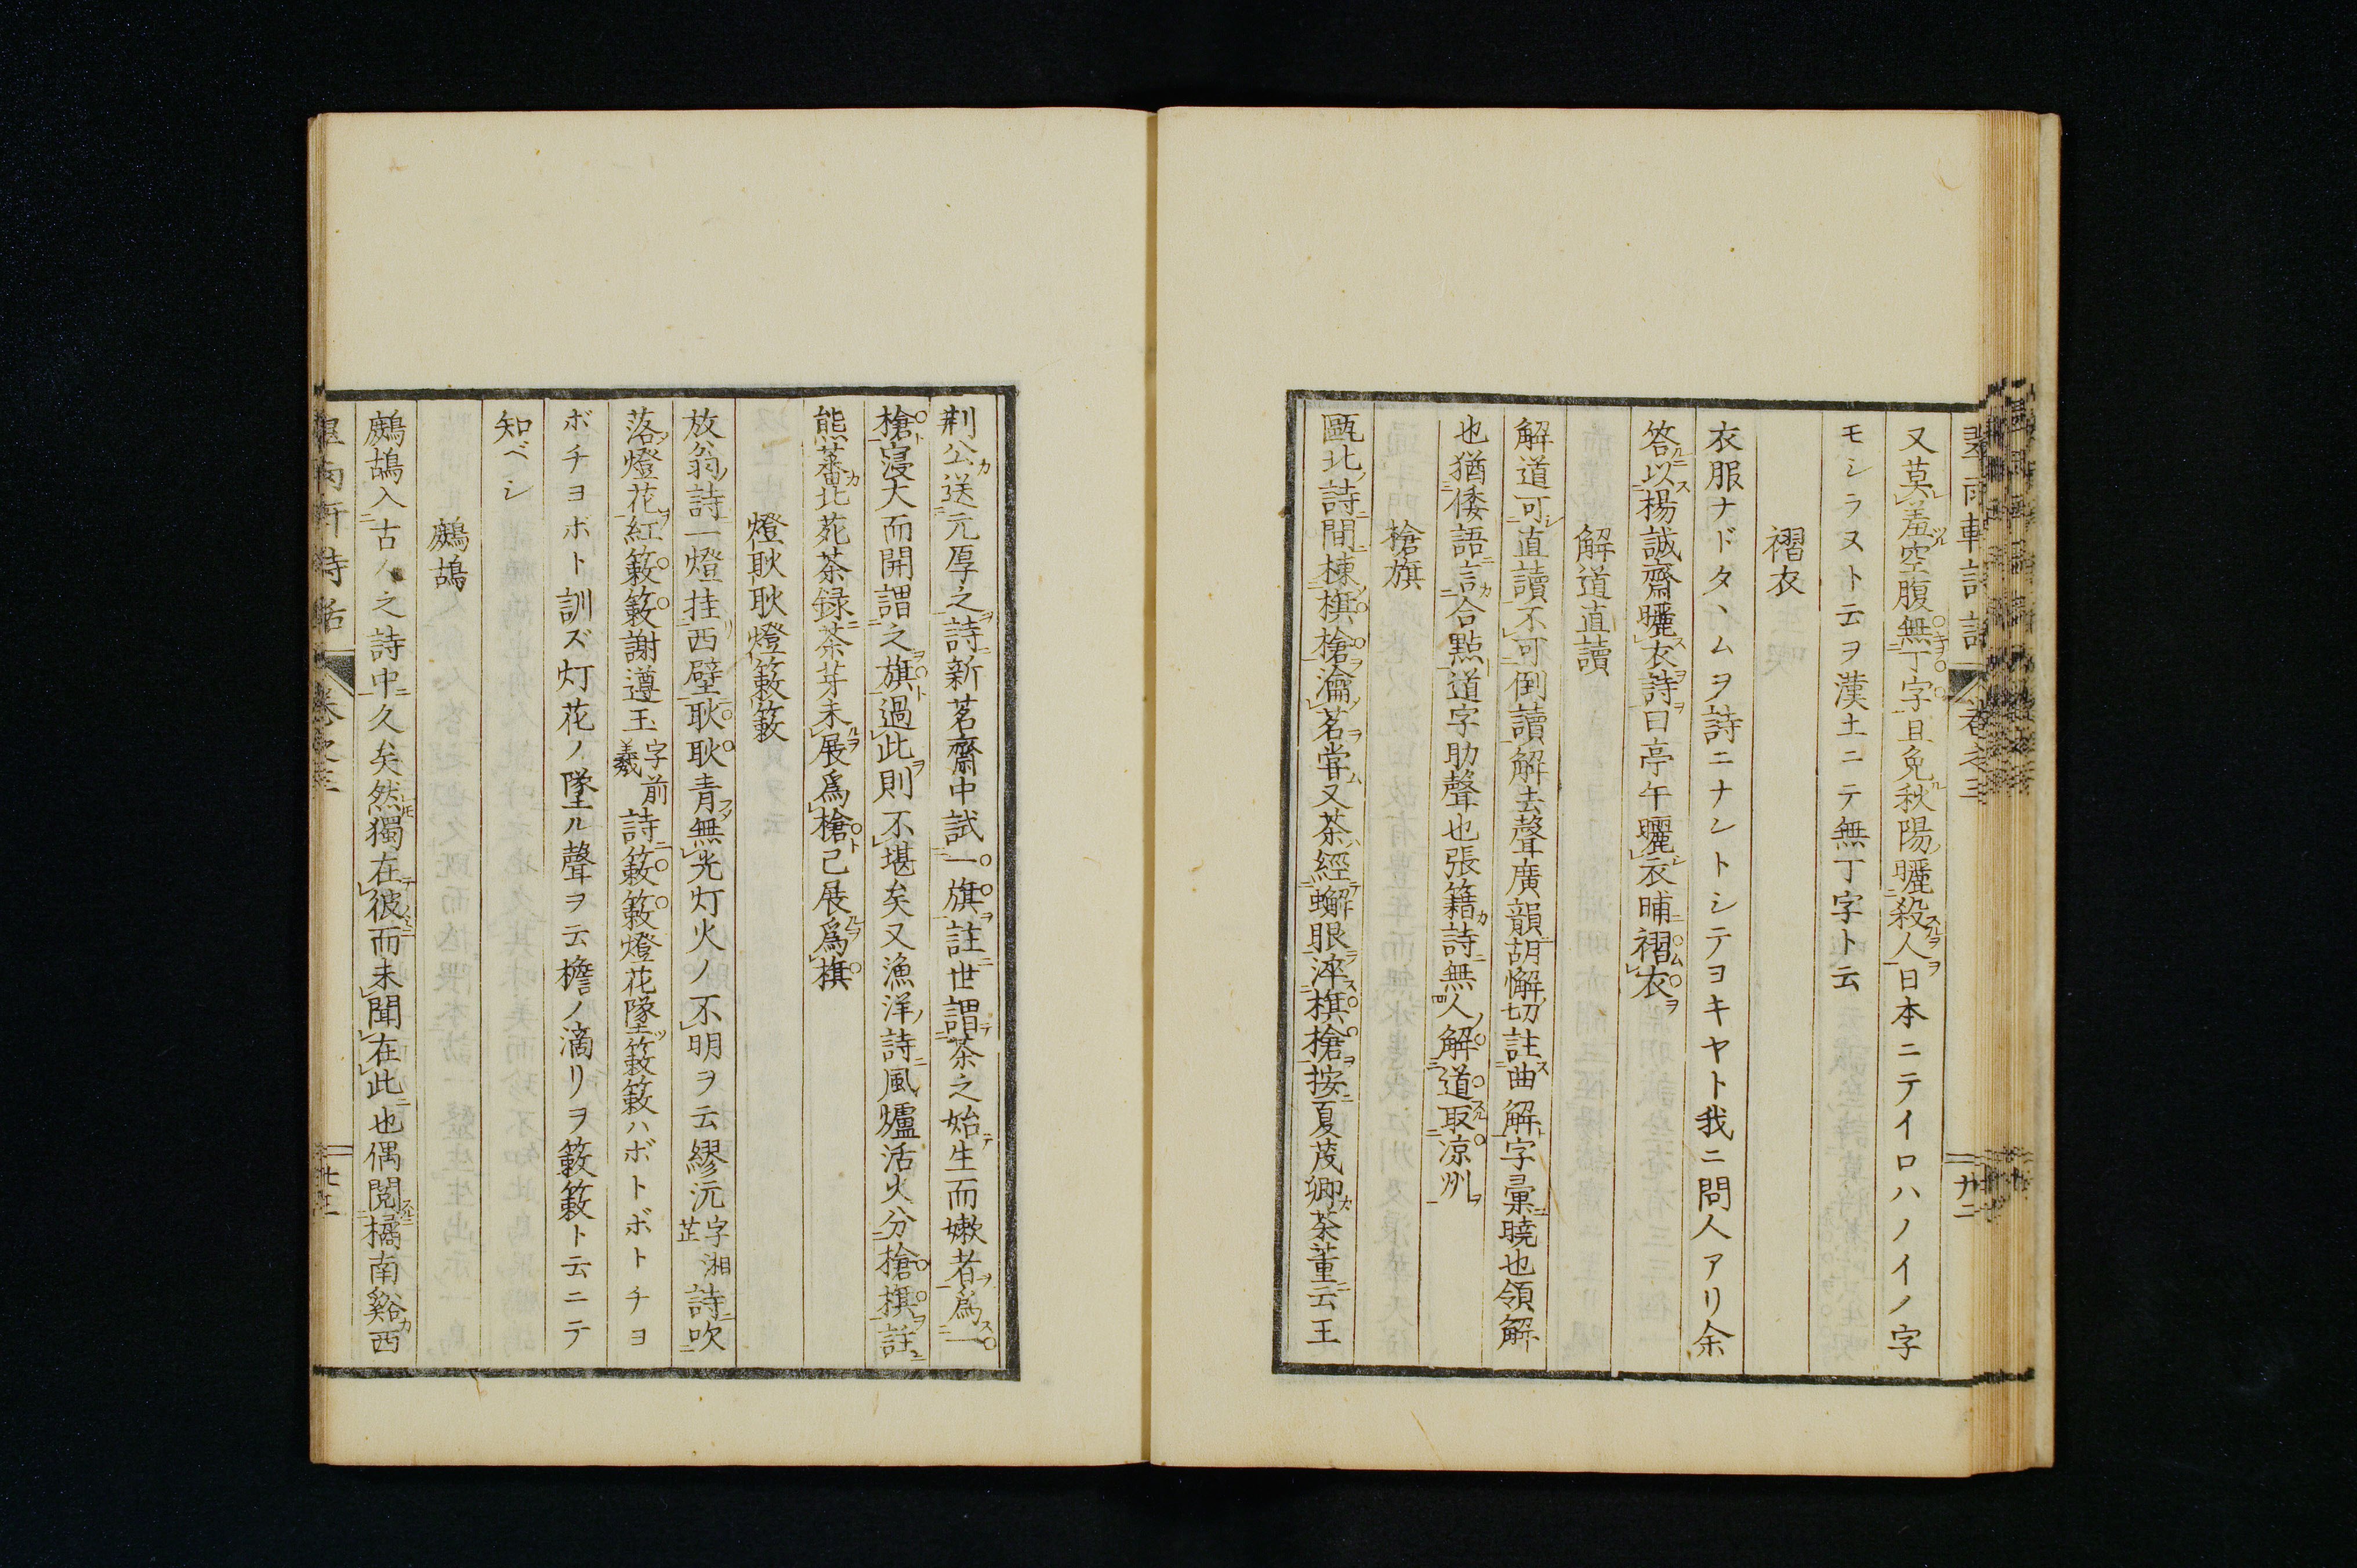 又莫羞空腹無丁字且免秋陽曬殺人日本ニテイロハノイノ字
モシラヌト云ヲ漢土ニテ無丁字ト云
褶衣
衣服ナドタヽムヲ詩ニナシトシテヨキヤト我ニ問人アリ余
答以楊誠齋曬衣詩曰亭午曬衣晡褶衣
解道直讀
解道可直讀不可倒讀解去聲廣韻胡懈切註曲解字彙曉也領解
也猶倭語言合點道字助聲也張籍詩無人解道取凉州
槍旗
甌北詩間棟槙槍瀹茗甞又茶經蠏眼淬槙槍按夏茂卿茶董云王
荆公送元厚之詩新茗齋中試一旗註世謂茶之始生而嫩者爲一
槍寖大而開謂之旗過此則不堪矣又漁洋詩風爐活火分槍槙註
熊蕃北苑茶録茶芽未展爲槍已展爲槙
燈耿耿燈簌簌
放翁詩一燈挂西壁耿耿青無光灯火ノ不明ヲ云繆沅字湘芷詩吹
落燈花紅簌簌謝遵王字前羲詩簌簌燈花墜簌簌ハボトボトチヨ
ボチヨボト訓ズ灯花ノ墜ル聲ヲ云檐ノ滴リヲ簌簌ト云ニテ
知ベシ
鷓鴣
鷓鴣入古人之詩中久矣然獨在彼而未聞在此也偶閲橘南谿西
卷之三